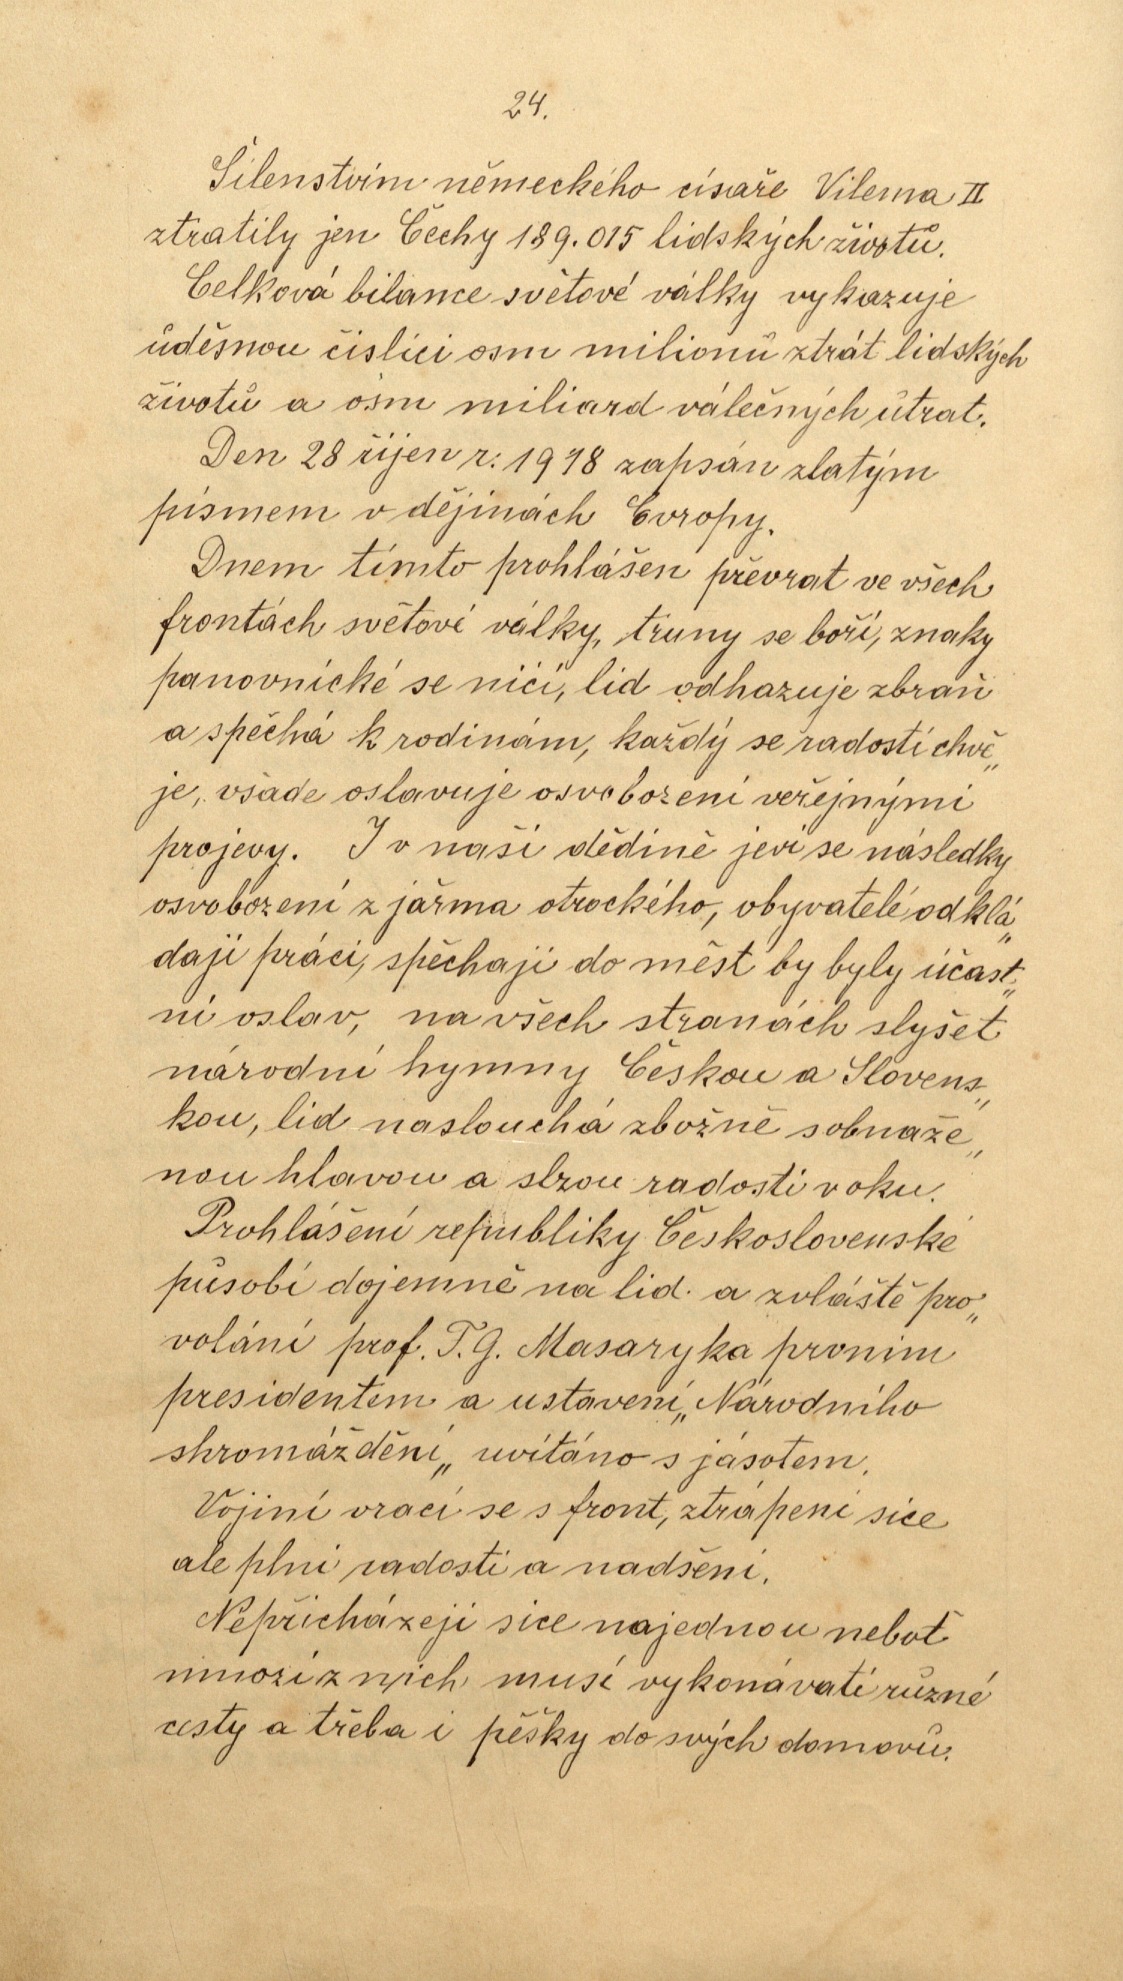 24.
Šílenstvím německého císaře Vilema II
ztratily jen Čechy 189.015 lidských životů.
Celková bilance světové války vykazuje
ůděsnou číslici osm milionů ztrát lidských
životů a osm miliard válečných ůtrat.
Den 28 říjen r: 1918 zapsán zlatým
písmem v dějinách Evropy.
Dnem tímto prohlášen převrat ve všech
frontách světové války, trůny se boří, znaky
panovnické se ničí, lid odhazuje zbraň
a spěchá k rodinám, každý se radostí chvě„
je, všade oslavuje osvobození veřejnými
projevy. I v naší dědině jeví se následky
osvobození z jařma otrockého, obyvatelé odklá„
dají práci, spěchají do měst by byly účast„
ni oslav, na všech stranách slyšet
národní hymny Českou a Slovens„
kou, lid naslouchá zbožně s obnaže„
nou hlavou a slzou radosti v oku.
Prohlášení republiky Československé
působí dojemně na lid a zvláště pro„
volání prof. T. G. Masaryka prvním
presidentem a ustavení „Národního
shromáždění„ uvítáno s jásotem.
Vojíni vrací se s front, ztrápení sice
ale plni radosti a nadšení.
Nepřicházejí sice najednou neboť
mnozí z nich musí vykonávati různé
cesty a třeba i pěšky do svých domovů.